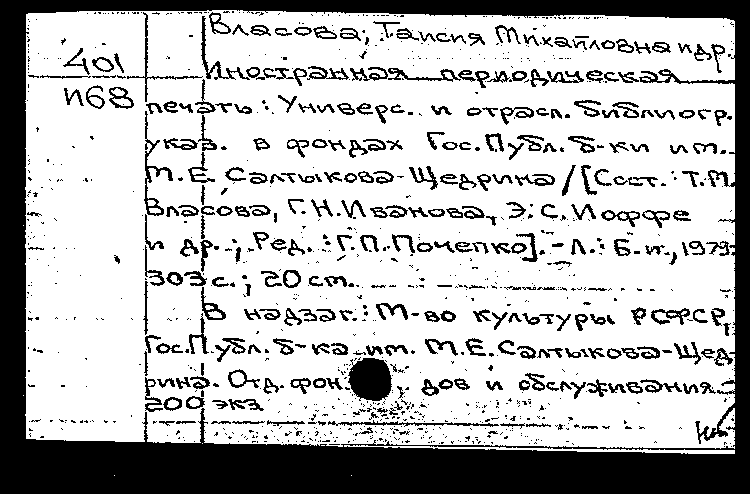 Власова, Таисия Михайловна и др.
401
Иностранная периодическая
И68
печать: Универс. и отрасл. библиогр.
указ. в фондах Гос. Публ. б-ки им.
М.Е. Салтыкова-Щедрина / [Сост.: Т.М.
Власова, Г.Н. Иванова, Э.С. Иоффе
и др.; Ред.: Г.П. Почепко]. - Л.: Б.и., 1979.
303 с.; 20 cm.
В надзаг.: М-во культуры РСФСР,
Гос. Публ. б-ка им. М.Е. Салтыкова-Щед-
рина. Отд. фон дов и обслуживания.
200 экз